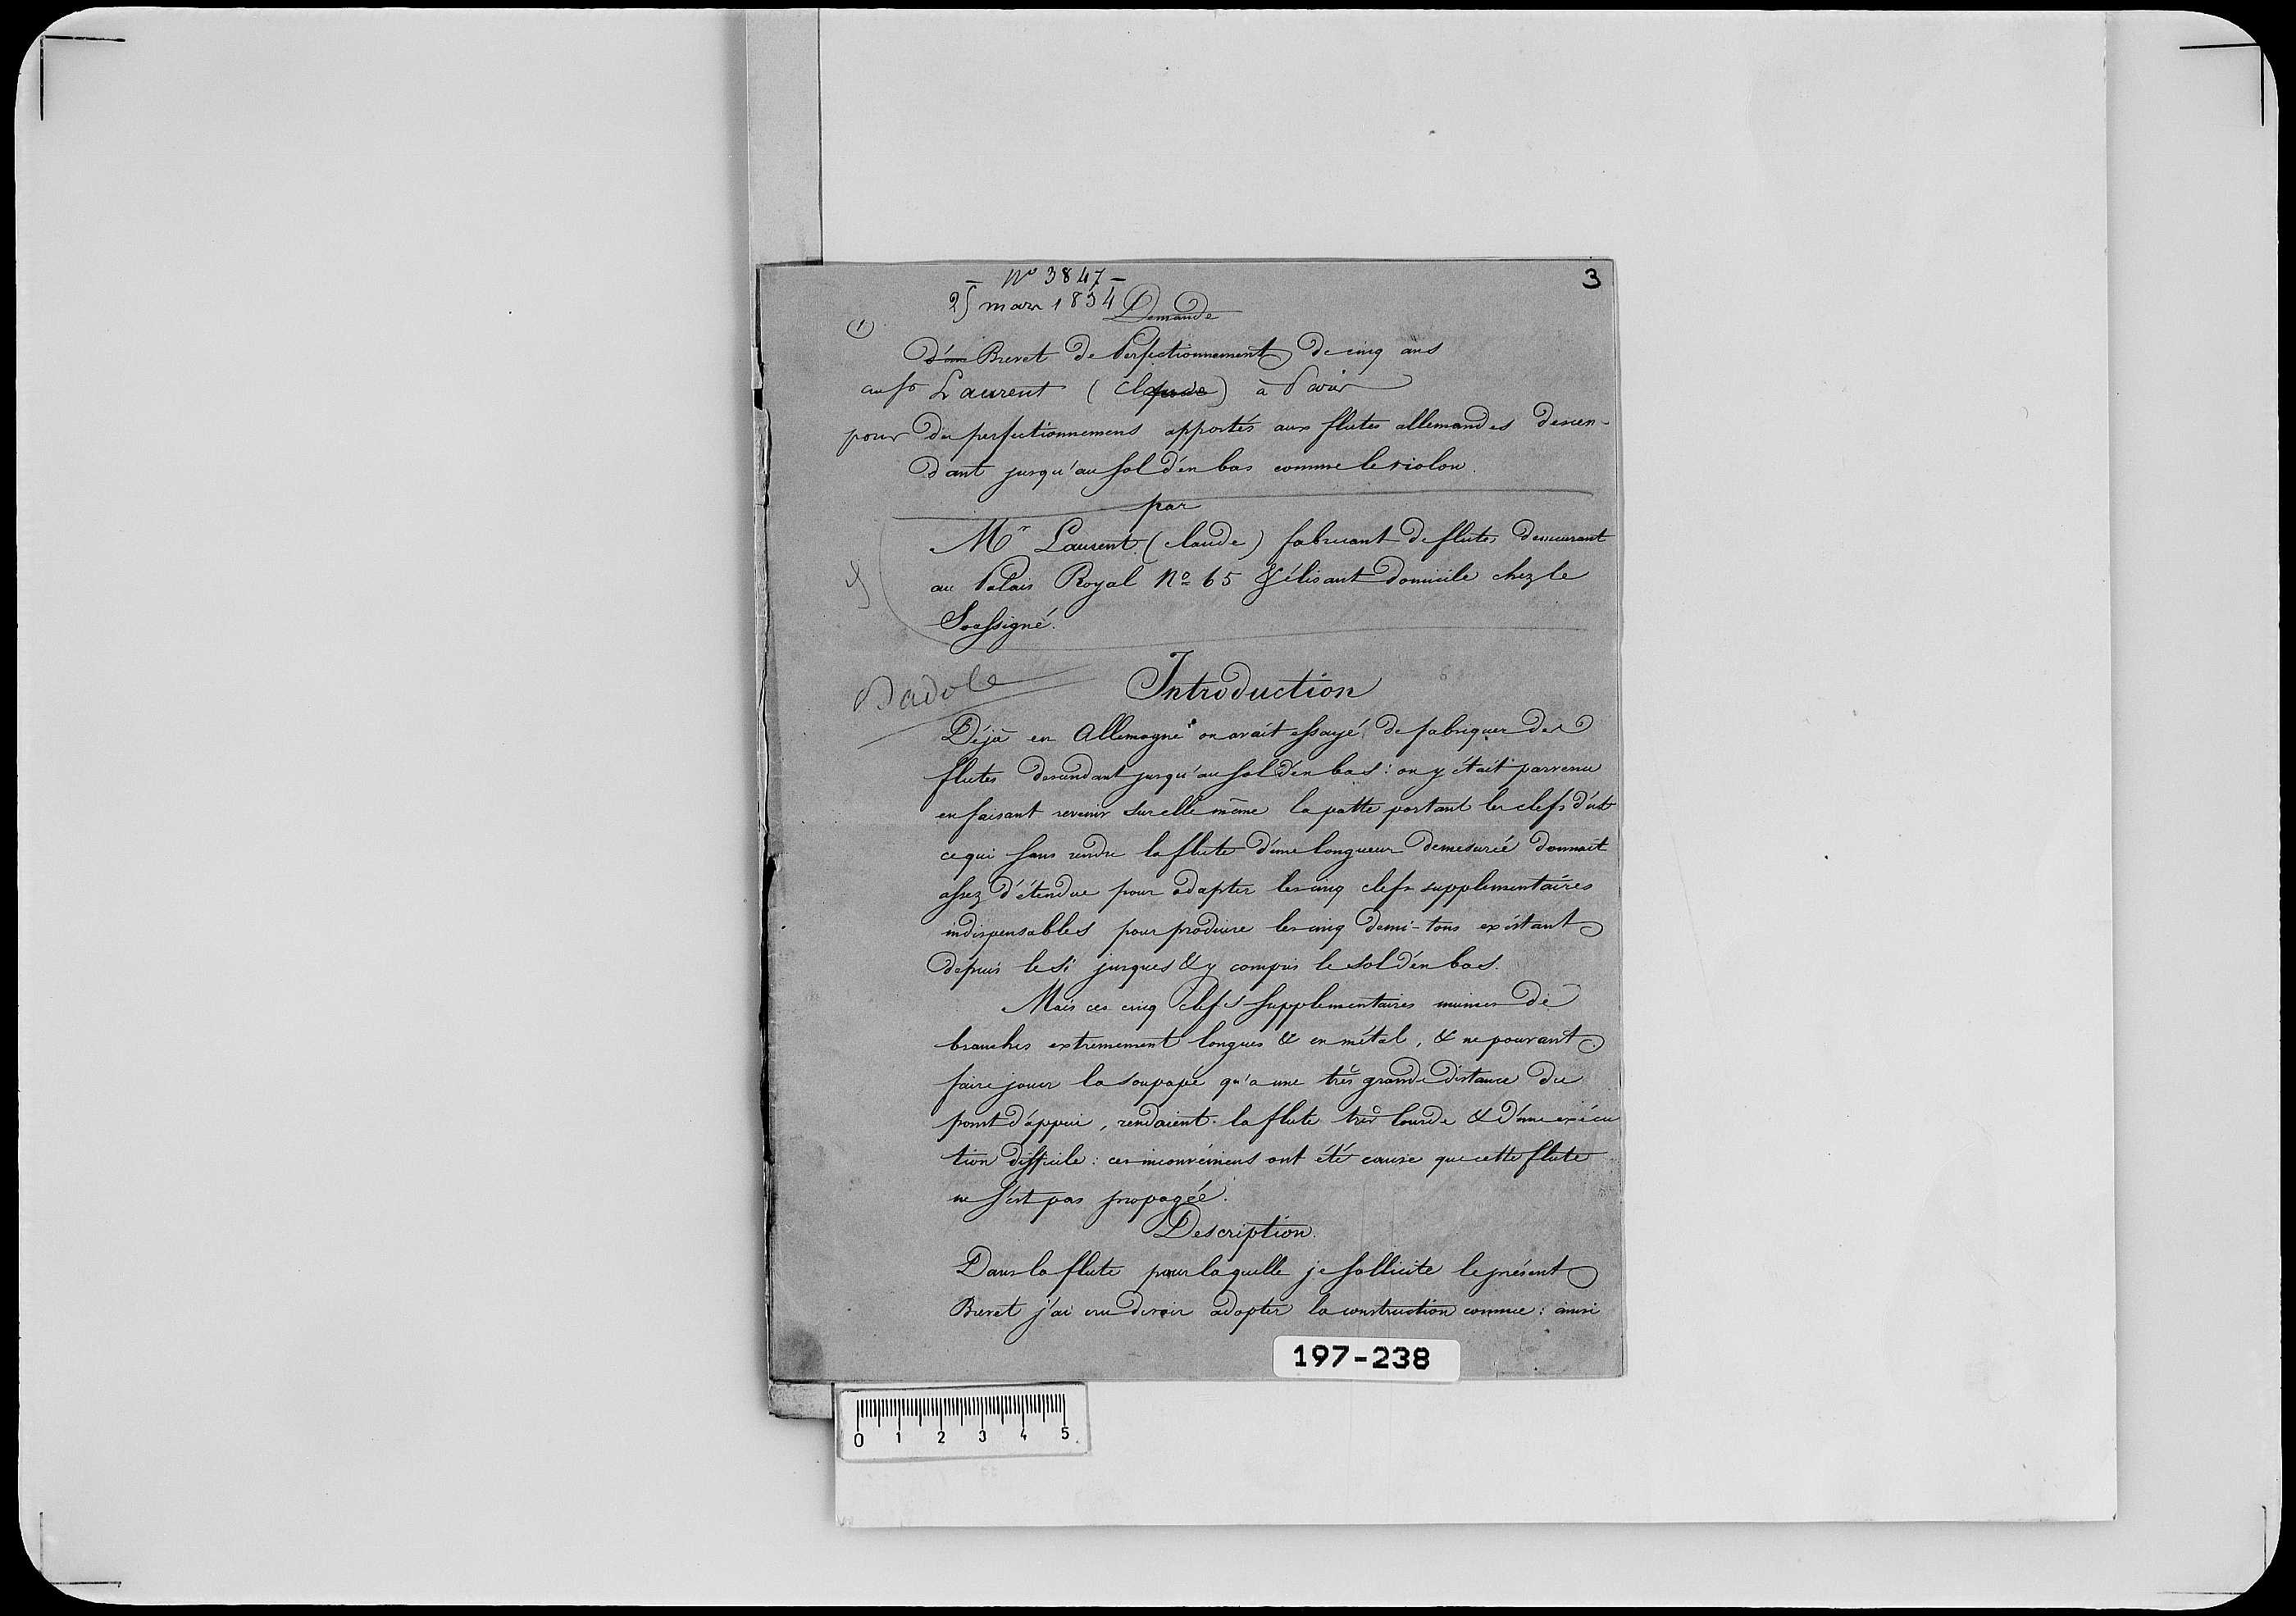 - No 3847 -
3
25 mars 1834 Demande
(1)
d'un Brevet de Perfectionnement de cinq ans
au sr Laurent (Claude) à Paris
pour des perfectionnemens apportés aux flutes allemandes descen-
dant jusqu'au sol d'en bas comme le violon.
par
Mr Laurent (claude) fabricant de flutes demeurant
au Palais Royal No 65 & élisant domicile chez le
Soussigné.
Introduction
Déjà en Allemagne on avait essayé de fabriquer des
flutes descendant jusqu'au sol d'en bas : on y était parvenu
en faisant revenir sur elle même la patte portant les clefs d'ut
ce qui sans rendre la flute d'une longueur demesurée donnait
assez d'étendue pour adapter les cinq clefs supplementaires
indispensables pour produire les cinq demi-tons existant
depuis le si jusques & y compris le sol d'en bas.
Mais ces cinq clefs supplementaires munies de
branches extremement longues & en métal, & ne pouvant
faire jouer la soupape qu'a une très grande distance du
point d'appui, rendaient la flute très lourde & d'une exécu
tion difficile : ces inconvéniens ont été cause que cette flute
ne s'est pas propagée.
Description.
Dans la flute pour laquelle je sollicite le présent
Brevet j'ai cru devoir adopter la construction connue : ainsi
197-238
0 1 2 3 4 5